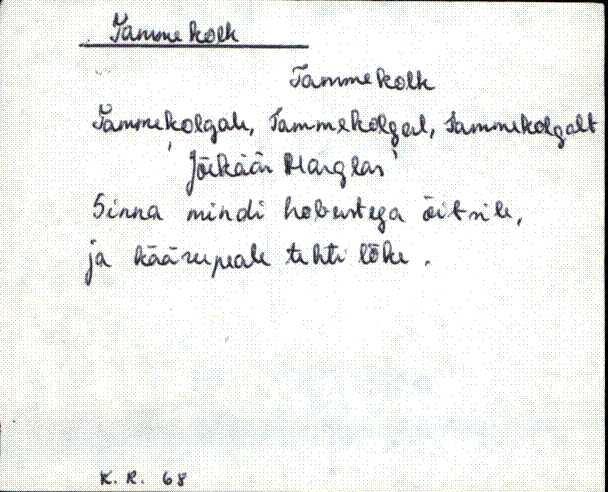 Tammekolk
Tammekolk
Tammekolgale, Tammekolgal, Tammekolgalt
'Jõekäär Harglas'
Sinna mindi hobustega õitsile,
ja käärupeale tehti lõke.
K. R. 68